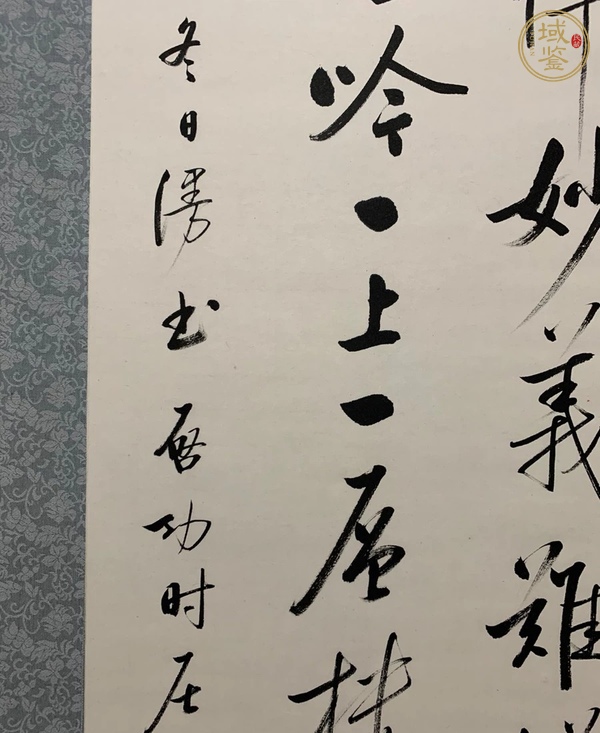 妙义难
吟一上一层
冬日漫书启功时居
域鉴